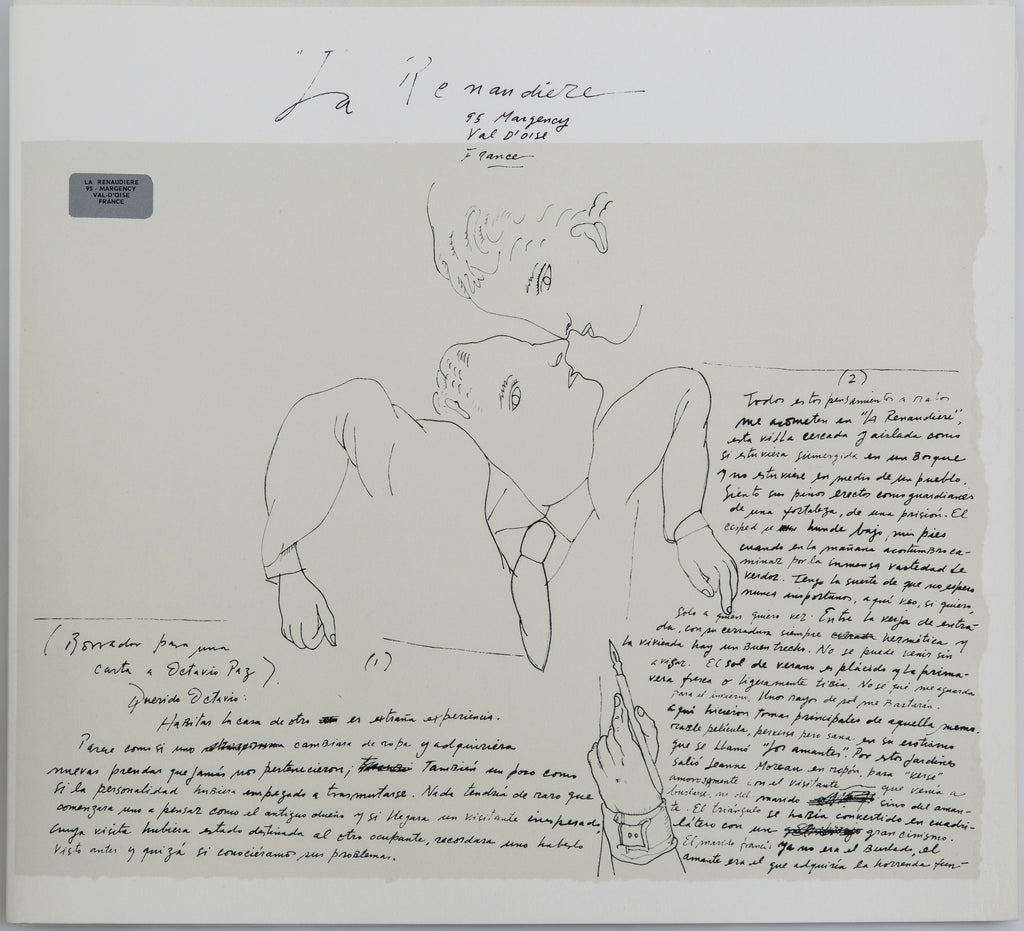 "La Renaudiere
95 Margency
Val D'oise
France
LA RENAUDIERE
95 - MARGENCY
VAL-D'OISE
FRANCE
(Borrador para una
carta a Octavio Paz)
(1)
Querido Octavio:
Habitar la casa de otro es extraña experiencia.
Parece como si uno cambiara de ropa y adquiriera
nuevas prendas que jamás nos pertenecieron; También un poco como
si la personalidad hubiera empezado a trasmutarse. Nada tendría de raro que
comenzara uno a pensar como el antiguo dueño y si llegara un visitante inesperado,
cuya visita hubiera estado destinada al otro ocupante, recordara uno haberlo
visto antes y quizá si conociéramos sus problemas.
(2)
Todos estos pensamientos a ratos
me acometen en "La Renaudiere",
esta villa cercada y aislada como
si estuviera sumergida en un Bosque
y no estuviese en medio de un pueblo.
Siento sus pinos erectos como guardianes
de una fortaleza, de una prisión. El
césped se hunde bajo mis pies
cuando en la mañana acostumbro ca-
minar por la inmensa vastedad de
verdor. Tengo la suerte de que no espero
nunca inoportunos, aquí veo, si quiero,
solo a quien quiero ver. Entre la verja de entra-
da, con su cerradura siempre hermética y
la vivienda hay un buen trecho. No se puede venir sin
avisar. El sol de verano es plácido y la prima-
vera fresca o ligeramente tibia. No sé qué me aguarda
para el invierno. Unos rayos de sol me bastarán.
Aquí hicieron tomas principales de aquella memo-
rable película, perversa pero sana en su erotismo
que se llamó "Los amantes". Por estos jardines
salió Jeanne Moreau en ropón, para "verse"
amorosamente con el visitante que venía a
burlarse, no del marido sino del aman-
te. El triángulo se había convertido en cuadri-
látero con un gran cinismo.
El marido francés ya no era el Burlado, el
amante era el que adquiría la horrenda fun-